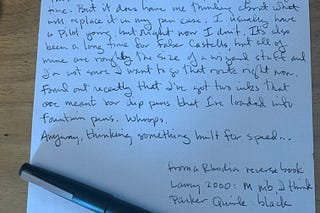 time. But it does have me thinking about what
will replace it in my pen case. I usually have
a Pilot going, but right now I don't. It's also
been a long time for Faber Castells, but all of
mine are roughly the size of a wizard staff and
I'm not sure I want to go that route right now.
Found out recently that I've got two inks that
are meant for dip pens that I've loaded into
fountain pens. Whoops.
Anyway, thinking something built for speed...
from a Rhodia reverse book
Lamy 2000: M nib, I think
Parker Quink black